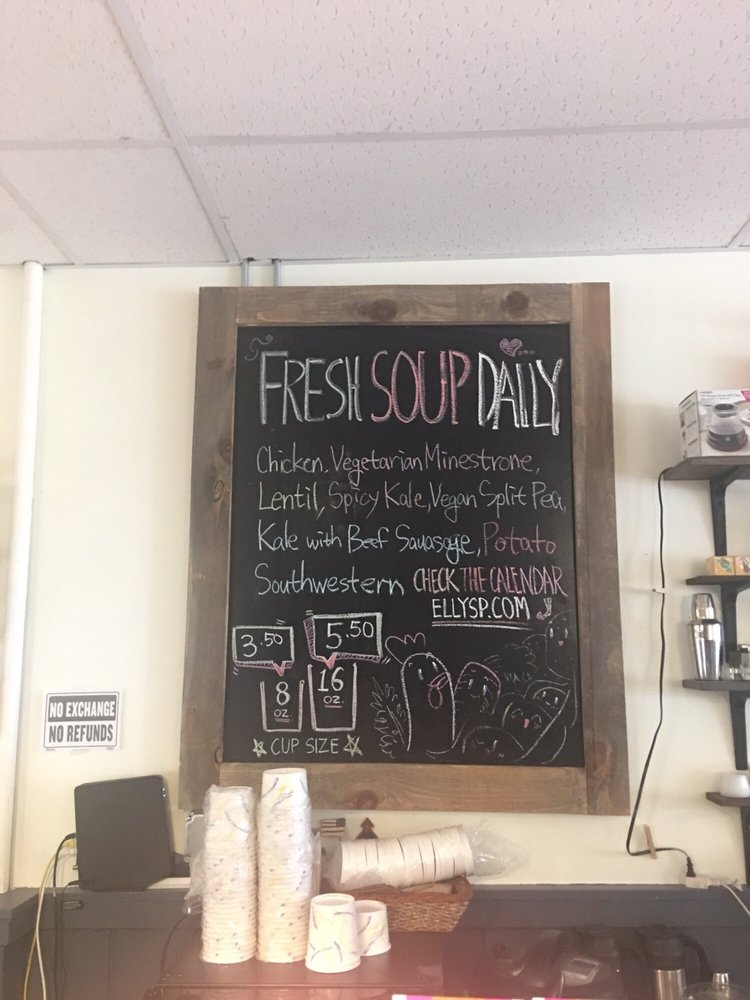 FRESH SOUP DAILY
Chicken, Vegetarian Minestrone,
Lentil, Spicy Kale, Vegan Split Pea,
Kale with Beef Sauasage, Potato
Southwestern CHECK THE CALENDAR
ELLYSP.COM
3.50
5.50
8 OZ.
16 OZ.
CUP SIZE
NO EXCHANGE
NO REFUNDS